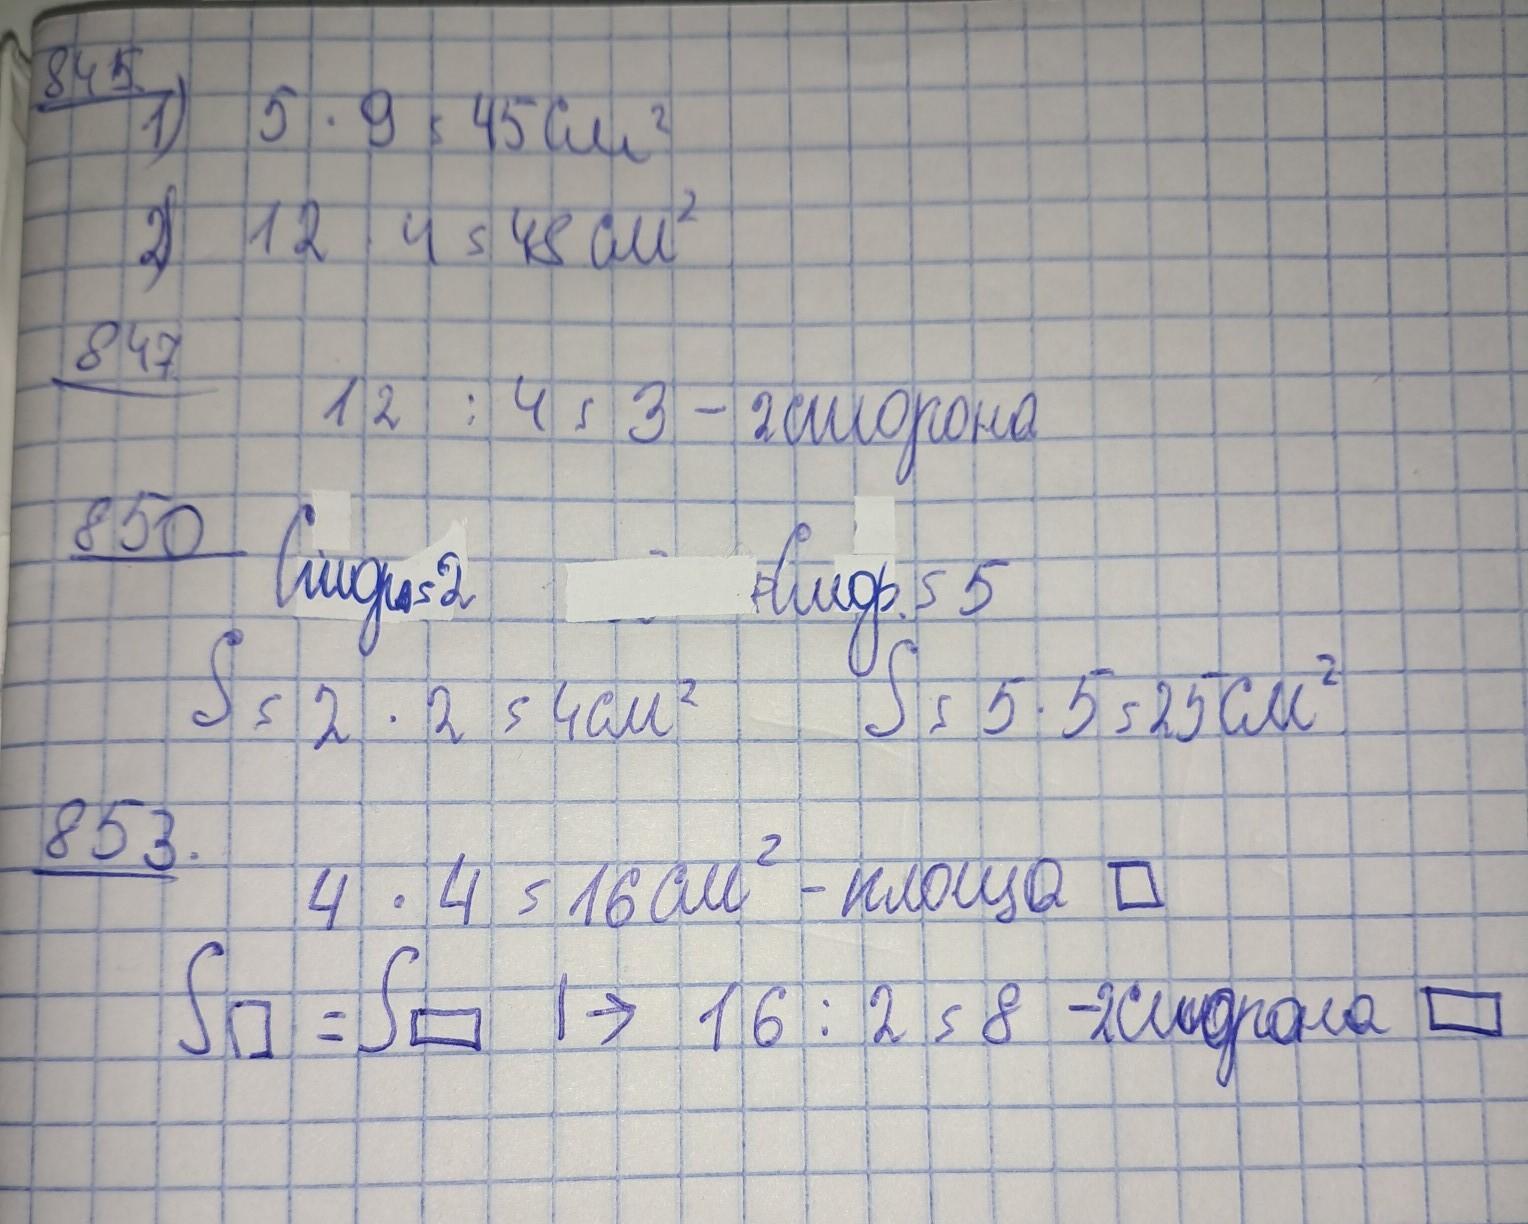 845
1) 5 · 9 = 45 см²
2) 12 · 4 = 48 см²
847
12 : 4 = 3 - 2 сторона
850 Стор. = 2 Стор. = 5
S = 2 · 2 = 4 см² S = 5 · 5 = 25 см²
853.
4 · 4 = 16 см² - площа □
S□ = S▭ |→ 16 : 2 = 8 - 2 сторона ▭